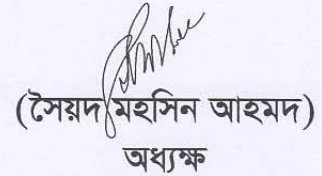 (সৈয়দ মহসিন আহমদ)
অধ্যক্ষ